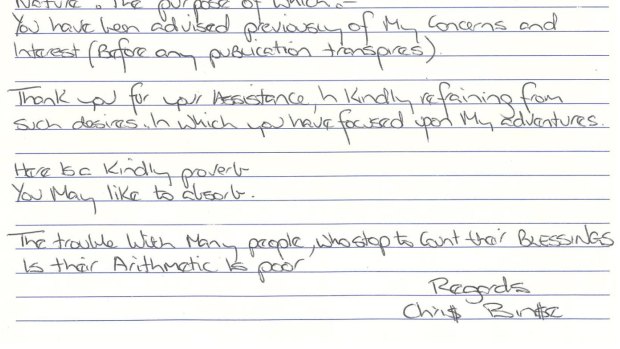 Nature. The purpose of which.—
You have been advised previously of My Concerns and
Interest (Before any publication transpires).
Thank you for your Assistance, In Kindly refraining from
such desires. In Which you have focused upon My adventures.
Here Is a Kindly proverb
You May like to absorb.
The trouble With Many people, who stop to Count their BLESSINGS
Is their Arithmetic Is poor
Regards
Chri$ Bin$e